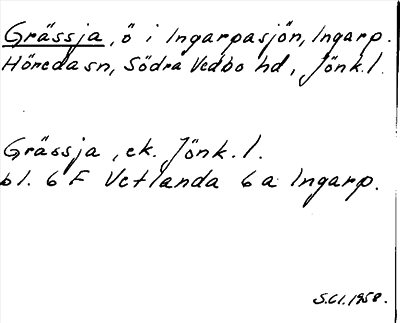 Grässja, ö i Ingarpasjön, Ingarp.
Höreda sn, Södra Vedbo hd, Jönk.l.
Grässja, ek. Jönk.l.
bl. 6 F Vetlanda 6a Ingarp.
S.Cl.1958.